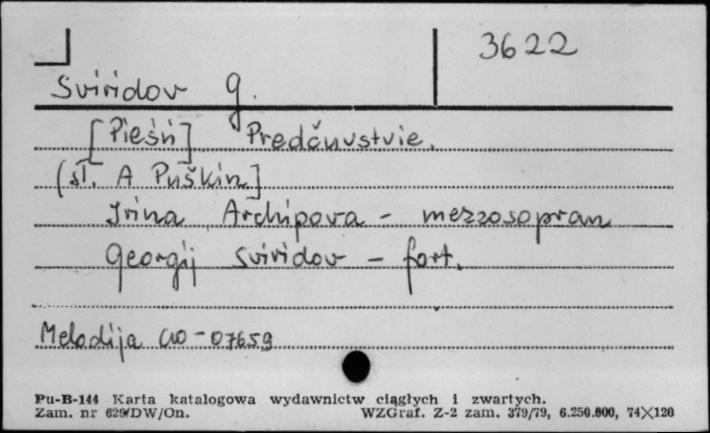 3622
Sviridov G.
[Pieśń] Predčuvstvie.
(sł. A Puškin]
Irina Archipova - mezzosopran
Georgij Sviridov - fort.
Melodija CM0-07659
Pu-B-144 Karta katalogowa wydawnictw ciągłych i zwartych.
Zam. nr 629/DW/On. WZGraf. Z-2 zam. 379/79, 6.250.000, 74X120